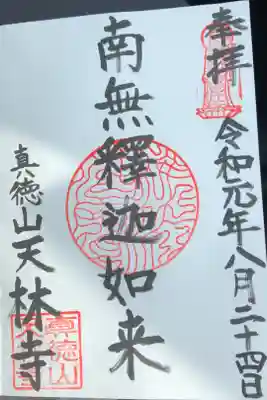 奉拝
令和元年八月二十四日
南無釋迦如来
真徳山天林寺
真徳山